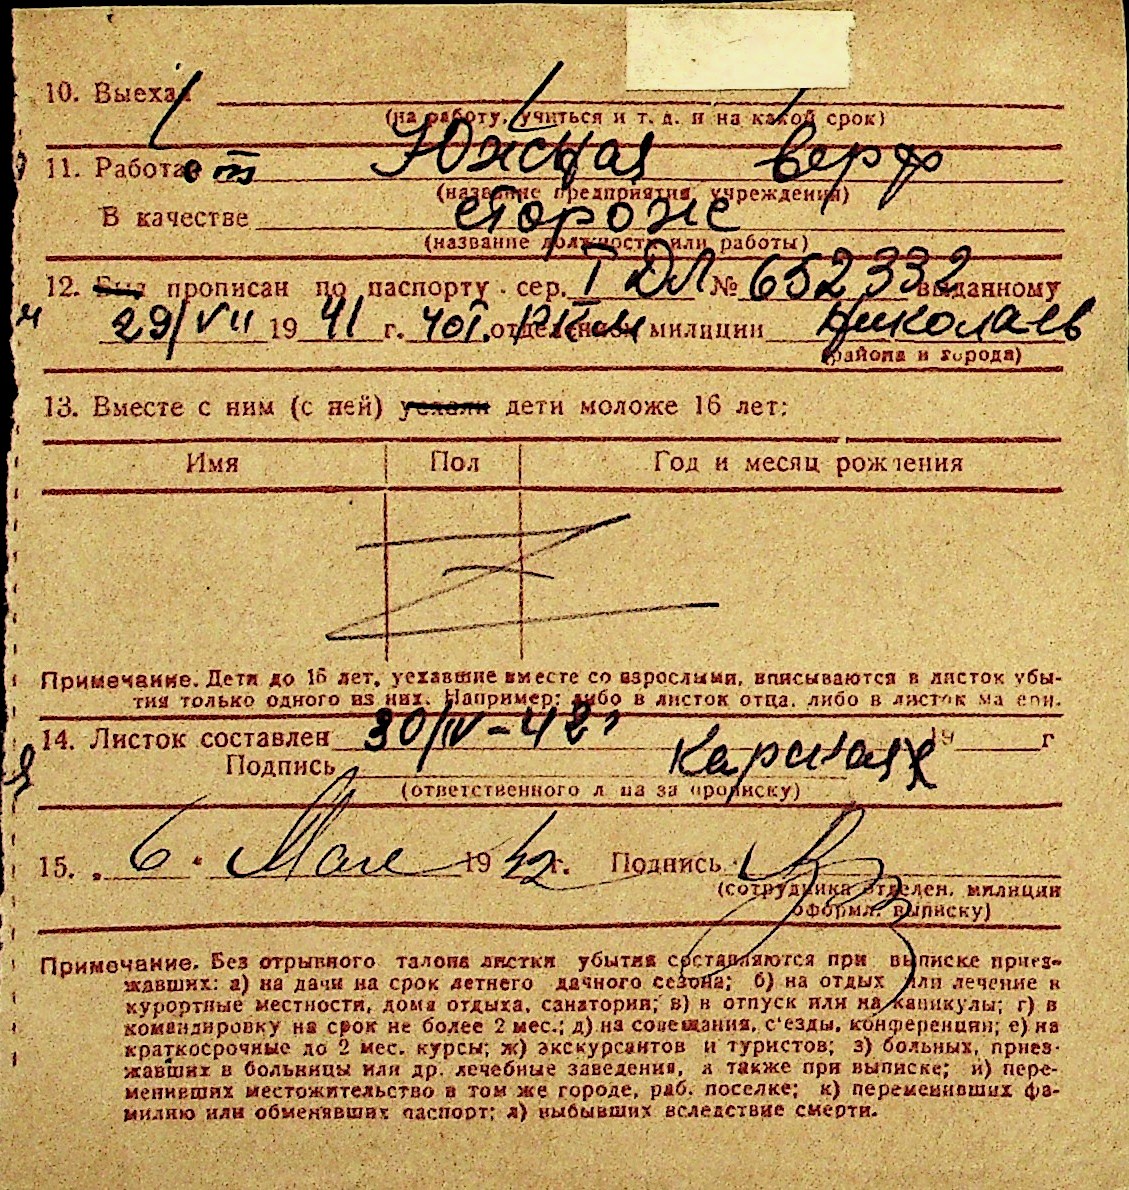 10. Выехал
(на работу, учиться и т. д. и на какой срок)
11. Работает Южная верф
(название предприятия, учреждения)
В качестве стороже
(название должности или работы)
12. Был прописан по паспорту сер. I ДЛ № 652332 выданному
29/VII 1941 г. отделением милиции Николаев
(района и города)
13. Вместе с ним (с ней) уехали дети моложе 16 лет:
Имя Пол Год и месяц рождения
Примечание. Дети до 16 лет, уехавшие вместе со взрослыми, вписываются в листок убы-
тия только одного из них. Например: либо в листок отца, либо в листок матери.
14. Листок составлен 30/IV-42 г 19 г
Подпись
(ответственного лица за прописку)
15. „ 6 " Мая 1942 г. Подпись
(сотрудника отделен. милиции
оформл. выписку)
Примечание. Без отрывного талона листки убытия составляются при выписке приез-
жавших: а) на дачи на срок летнего дачного сезона; б) на отдых или лечение в
курортные местности, дома отдыха, санатории; в) в отпуск или на каникулы; г) в
командировку на срок не более 2 мес.; д) на совещания, с'езды, конференции; е) на
краткосрочные до 2 мес. курсы; ж) экскурсантов и туристов; з) больных, приез-
жавших в больницы или др. лечебные заведения, а также при выписке; и) пере-
менивших местожительство в том же городе, раб. поселке; к) переменивших фа-
милию или обменявших паспорт; л) выбывших вследствие смерти.